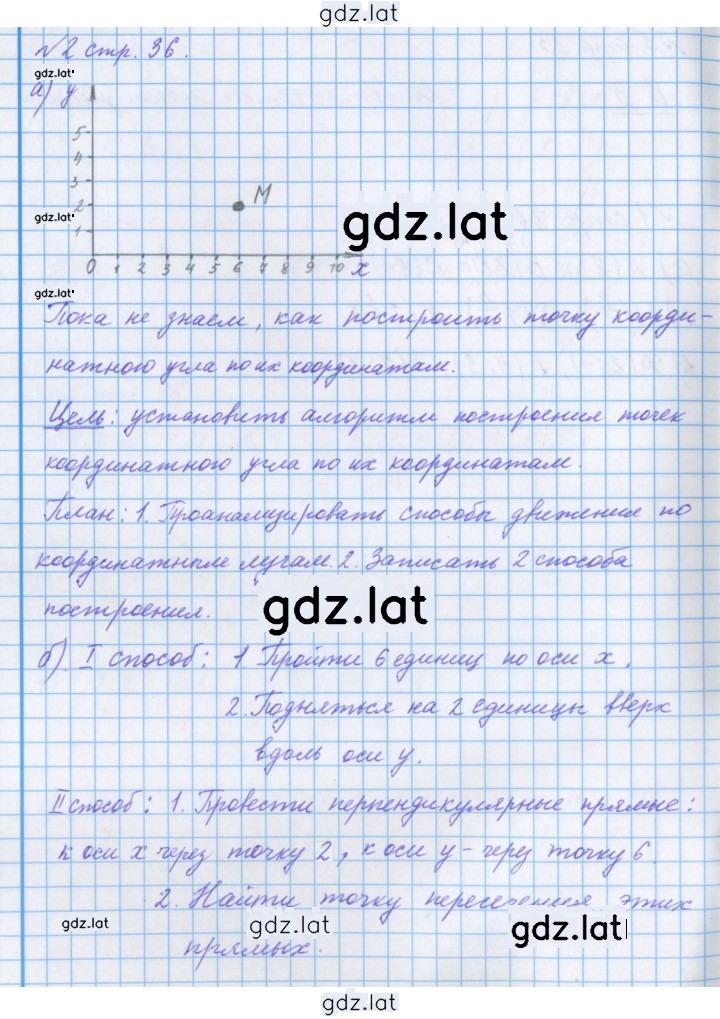 gdz.lat
№2 стр. 36.
gdz.lat
а) y
5
4
3
2 M
gdz.lat
gdz.lat
1
0 1 2 3 4 5 6 7 8 9 10 x
gdz.lat
Пока не знаем, как построить точку коорди-
натного угла по их координатам.
Цель: установить алгоритм построения точек
координатного угла по их координатам.
План: 1. Проанализировать способы движения по
координатным лучам. 2. Записать 2 способа
построения.
gdz.lat
б) I способ: 1. Пройти 6 единиц по оси x.
2. Подняться на 2 единицы вверх
вдоль оси y.
II способ: 1. Провести перпендикулярные прямые:
к оси x через точку 2, к оси y - через точку 6.
2. Найти точку пересечения этих
gdz.lat
gdz.lat
gdz.lat
прямых.
gdz.lat